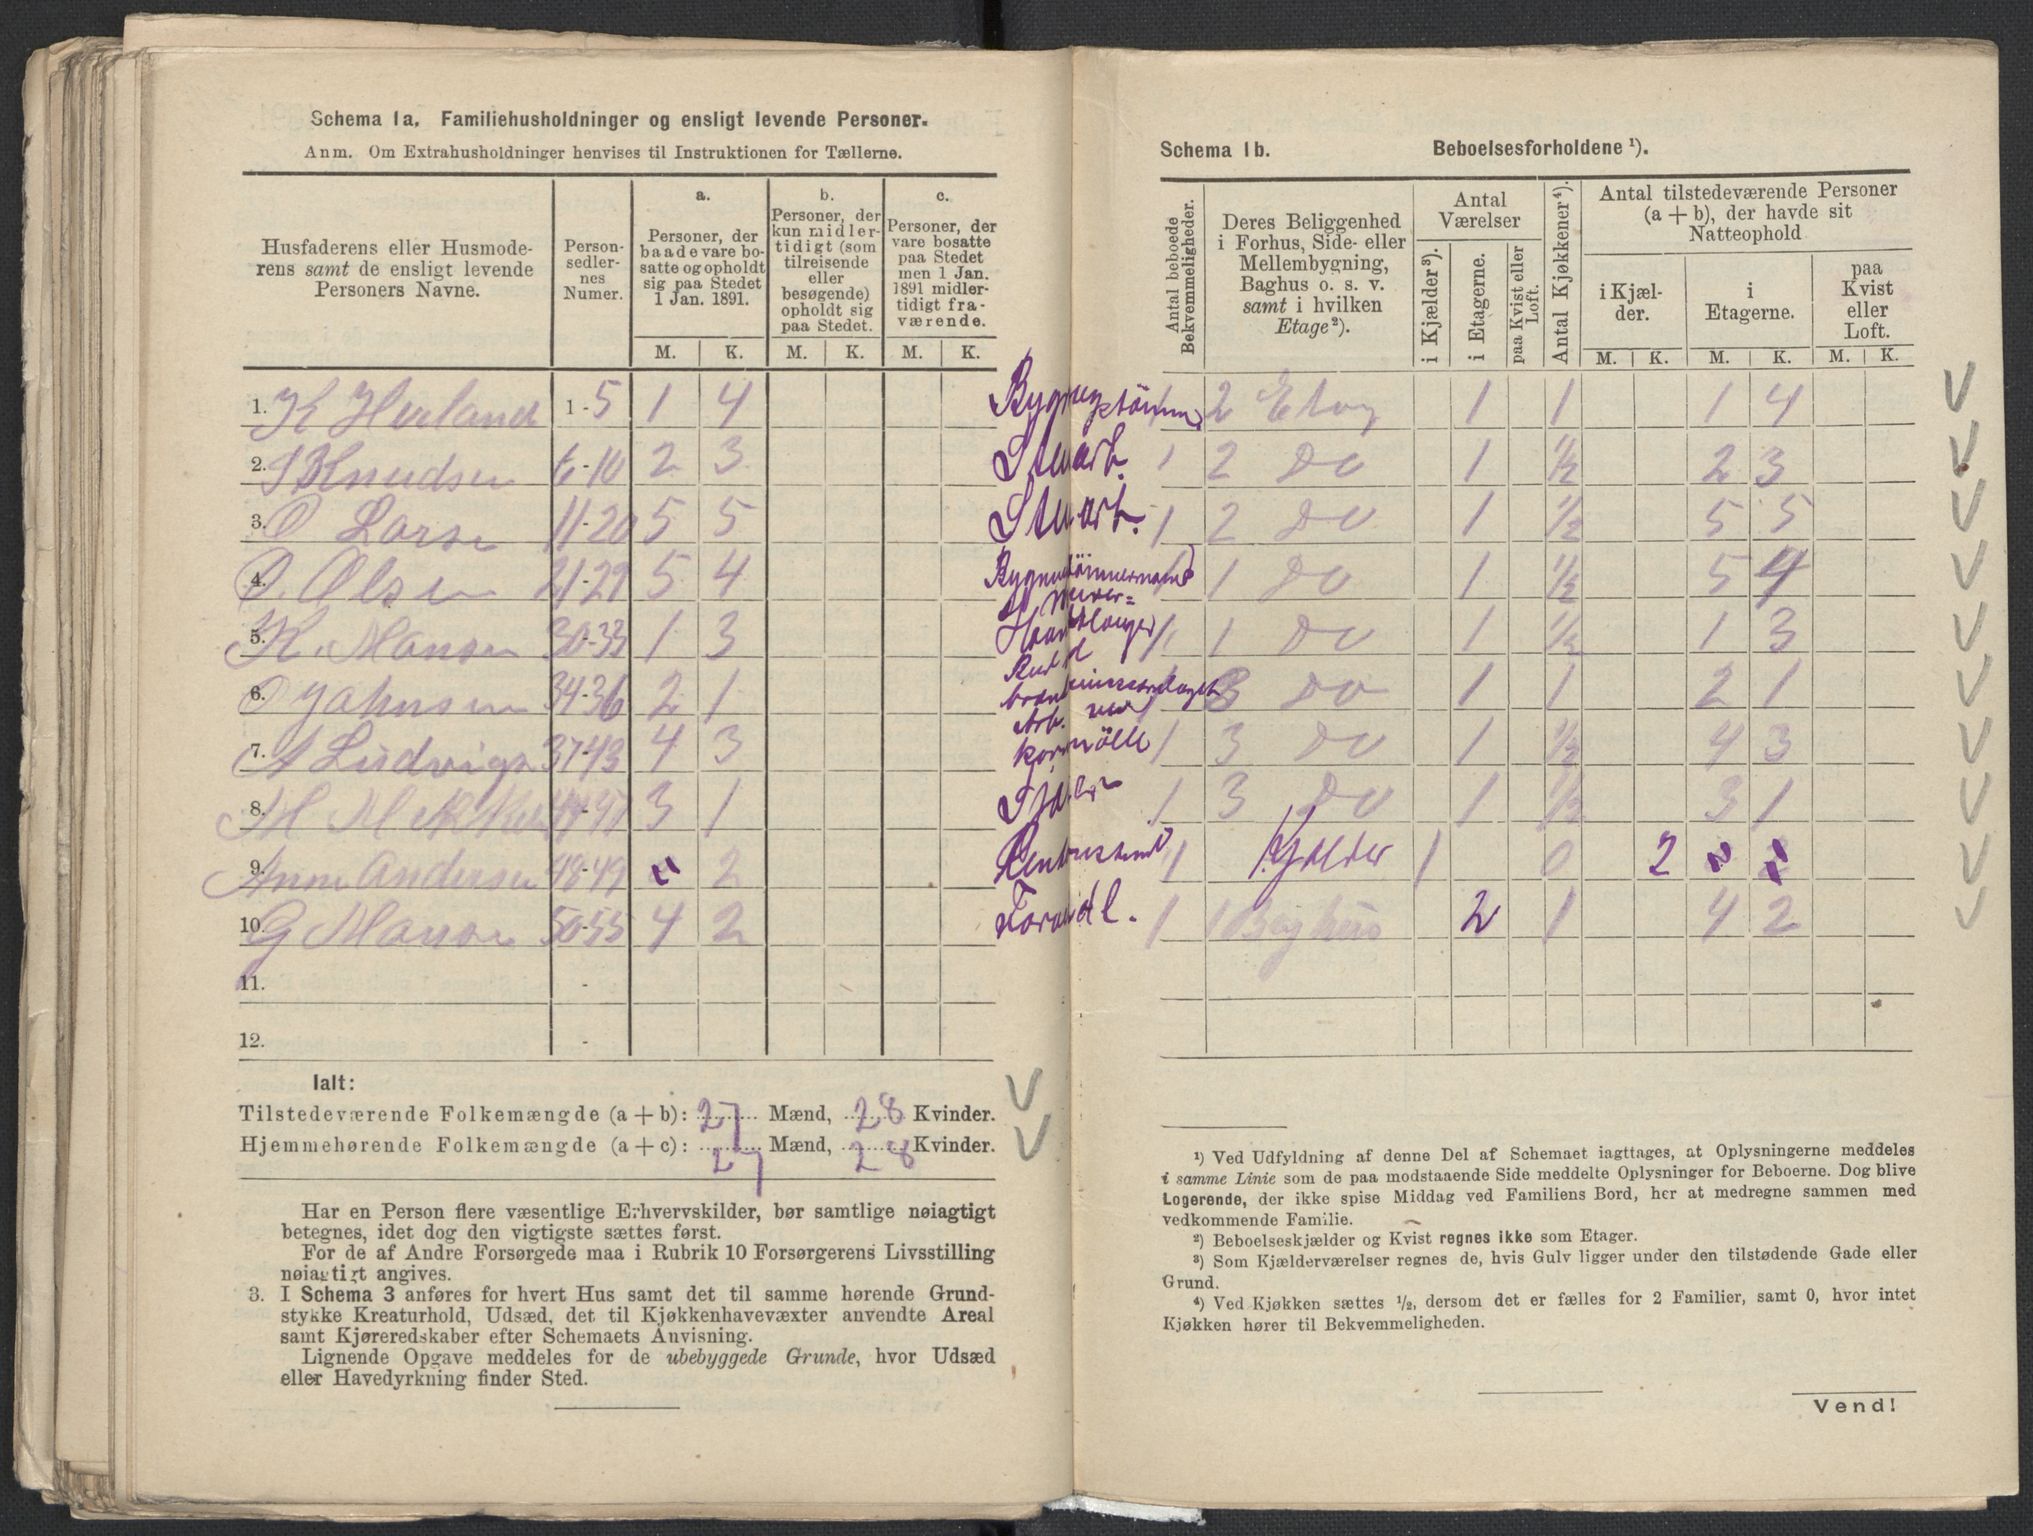 Schema 1a. Familiehusholdninger og ensligt levende Personer.
Anm. Om Extrahusholdninger henvises til Instruktionen for Tællerne.
Husfaderens eller Husmoderens samt de ensligt levende Personers Navne.
Personsedlernes Numer.
a.
Personer, der baade vare bosatte og opholdt sig paa Stedet 1 Jan. 1891.
b.
Personer, der kun midlertidigt (som tilreisende eller besøgende) opholdt sig paa Stedet.
c.
Personer, der vare bosatte paa Stedet men 1 Jan. 1891 midlertidigt fraværende.
M. K. M. K. M. K.
1. K Herland 1-5 1 4
2. S Knudsen 6-10 2 3
3. O Larsen 11-20 5 5
4. O. Olsen 21-29 5 4
5. K. Monsen 30-33 1 3
6. O Johnsen 34-36 2 1
7. A Ludvigs 37-43 4 3
8. M 44-47 3 1
9. Anne Andersen 48-49 " 2
10. G Monsen 50-55 4 2
11. -
12. -
Ialt:
Tilstedeværende Folkemængde (a + b): 27 Mænd, 28 Kvinder.
Hjemmehørende Folkemængde (a + c): 27 Mænd, 28 Kvinder.
Har en Person flere væsentlige Erhvervskilder, bør samtlige nøiagtigt
betegnes, idet dog den vigtigste sættes først.
For de af Andre Forsørgede maa i Rubrik 10 Forsørgerens Livsstilling
nøiagtigt angives.
3. I Schema 3 anføres for hvert Hus samt det til samme hørende Grund-
stykke Kreaturhold, Udsæd, det til Kjøkkenhavevæxter anvendte Areal
samt Kjøreredskaber efter Schemaets Anvisning.
Lignende Opgave meddeles for de ubebyggede Grunde, hvor Udsæd
eller Havedyrkning finder Sted.
Schema 1b. Beboelsesforholdene ¹).
Antal beboede Bekvemmeligheder.
Deres Beliggenhed i Forhus, Side- eller Mellembygning, Baghus o. s. v. samt i hvilken Etage²).
Antal Værelser
i Kjælder³).
i Etagerne.
paa Kvist eller Loft.
Antal Kjøkkener⁴).
Antal tilstedeværende Personer (a + b), der havde sit Natteophold
i Kjælder.
i Etagerne.
paa Kvist eller Loft.
M. K. M. K. M. K.
1 2 Etag 1 1 1 4
Stuarb. 1 2 Do 1 ½ 2 3
Stuarb. 1 2 Do 1 ½ 5 5
1 1 Do 1 ½ 5 4
Murer=
Haandlanger 1 1 Do 1 ½ 1 3
1 3 Do 1 1 2 1
Arb. ved
Kornmölle 1 3 Do 1 ½ 4 3
1 3 Do 1 ½ 3 1
1 1. Kjelder 1 0 2
1 1 Baghus 2 1 4 2
¹) Ved Udfyldning af denne Del af Schemaet iagttages, at Oplysningerne meddeles
i samme Linie som de paa modstaaende Side meddelte Oplysninger for Beboerne. Dog blive
Logerende, der ikke spise Middag ved Familiens Bord, her at medregne sammen med
vedkommende Familie.
²) Beboelseskjælder og Kvist regnes ikke som Etager.
³) Som Kjælderværelser regnes de, hvis Gulv ligger under den tilstødende Gade eller
Grund.
⁴) Ved Kjøkken sættes ½, dersom det er fælles for 2 Familier, samt 0, hvor intet
Kjøkken hører til Bekvemmeligheden.
Vend!